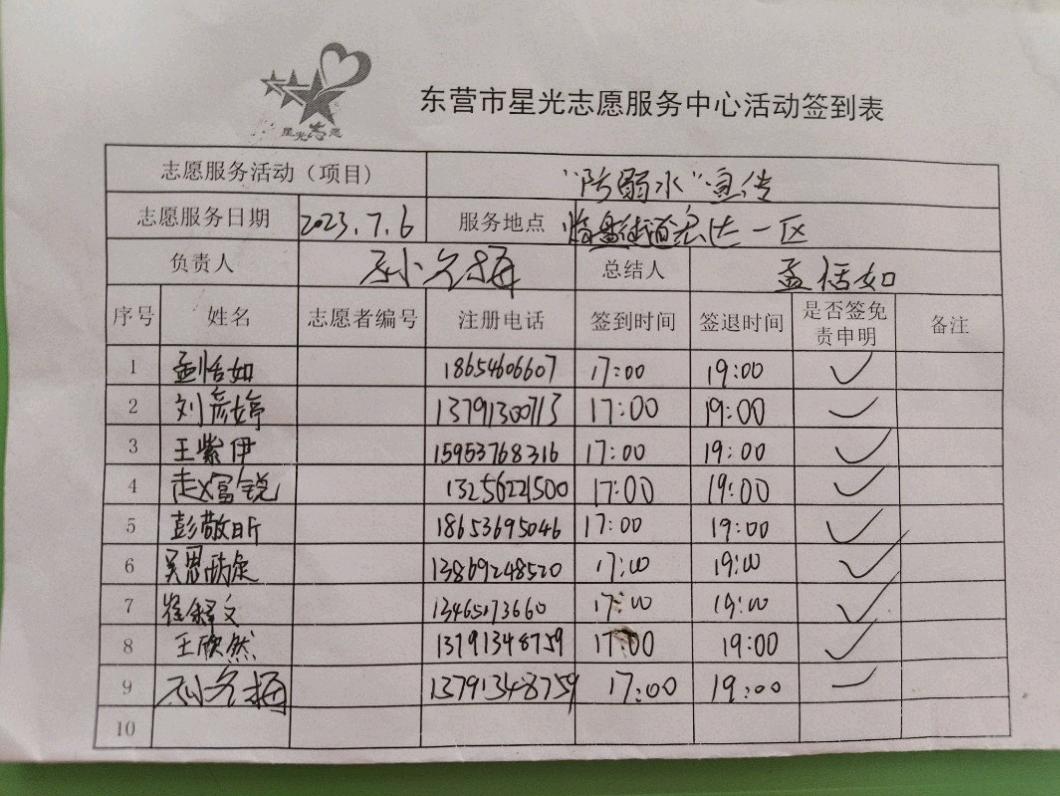 星光志愿
东营市星光志愿服务中心活动签到表
志愿服务活动（项目） "防溺水"宣传
志愿服务日期 2023.7.6 服务地点 临盘街道宏达一区
负责人 孙冬梅 总结人 孟恬如
序号 姓名 志愿者编号 注册电话 签到时间 签退时间 是否签免责申明 备注
1 孟恬如 18654606607 17:00 19:00 ✓
2 刘彦婷 13791300713 17:00 19:00 ✓
3 王紫伊 15953768316 17:00 19:00 ✓
4 赵富锐 13256221500 17:00 19:00 ✓
5 彭敬昕 18653695046 17:00 19:00 ✓
6 吴思 13869248520 17:00 19:00 ✓
7 崔译文 13465173660 17:00 19:00 ✓
8 王欣然 13791348759 17:00 19:00 ✓
9 孙冬梅 13791348759 17:00 19:00 ✓
10